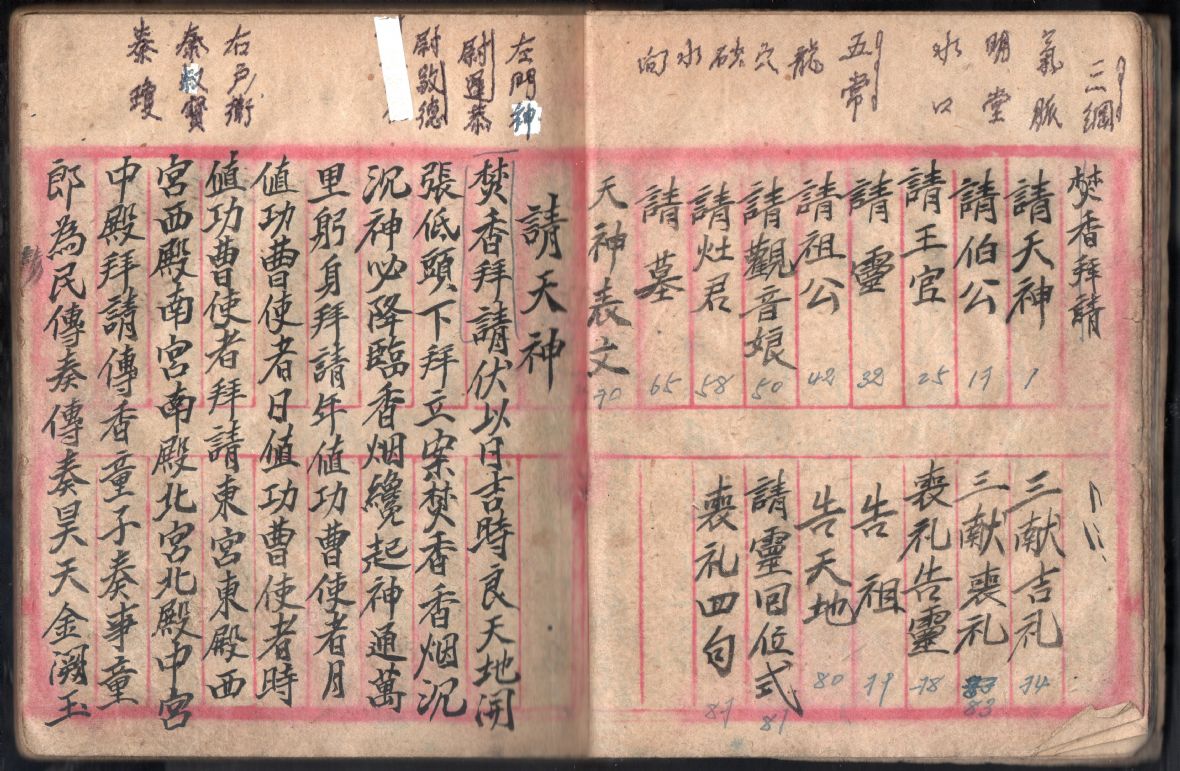 三綱
氣脈
明堂
水口
五常
龍
穴
砂
水
向
焚香拜請
請天神 1
請伯公 17
請王官 25
請靈 32
請祖公 42
請觀音娘 50
請灶君 58
請墓 65
天神表文 70
三献吉礼 74
三献喪礼 83
喪礼告靈 78
告祖 79
告天地 80
請靈回位式 81
喪礼四句 87
左門神
尉遲恭
尉敦德
右戶衛
秦叔寶
秦瓊
請天神
焚香拜請伏以日吉時良天地開
張低頭下拜立案焚香香烟沉
沉神必降臨香烟纔起神通萬
里躬身拜請年值功曹使者月
值功曹使者日值功曹使者時
值功曹使者拜請東宮東殿西
宮西殿南宮南殿北宮北殿中宮
中殿拜請傳香童子奏事童
郎為民傳奏傳奏昊天金闕玉